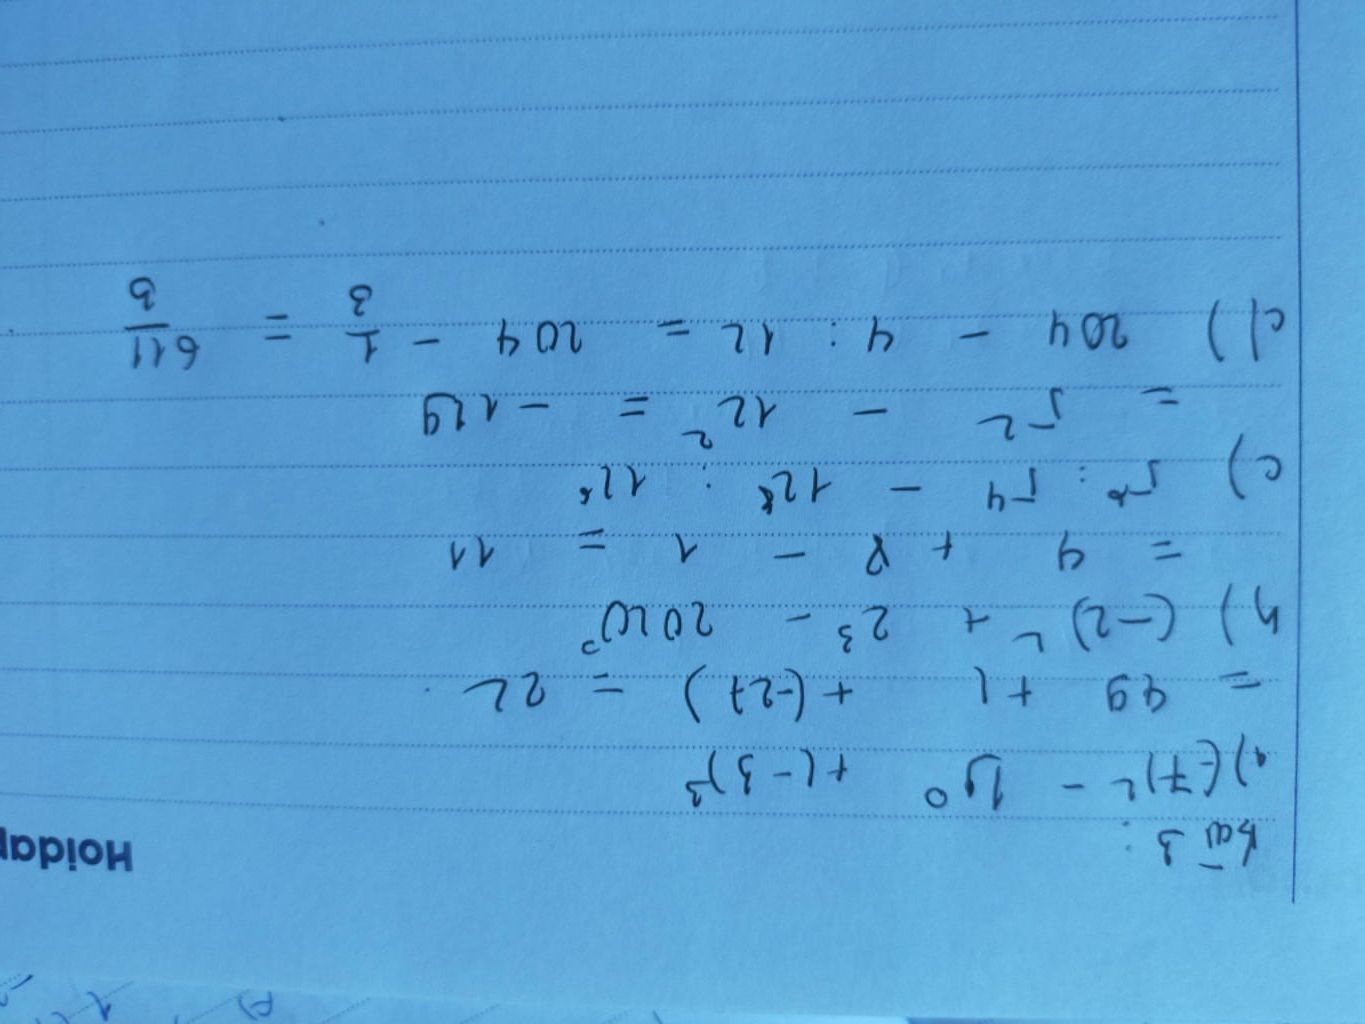 Hoidap
Bài 3 :
a) (-7)² - 15⁰ + (-3)³
= 49 + 1 + (-27) = 22
b) (-2)² + 2³ - 2020⁰
= 4 + 8 - 1 = 11
c) 5⁶ : 5⁴ - 12⁸ : 12⁶
= 5² - 12² = -119
c) 204 - 4 : 12 = 204 - 1/3 = 611/3